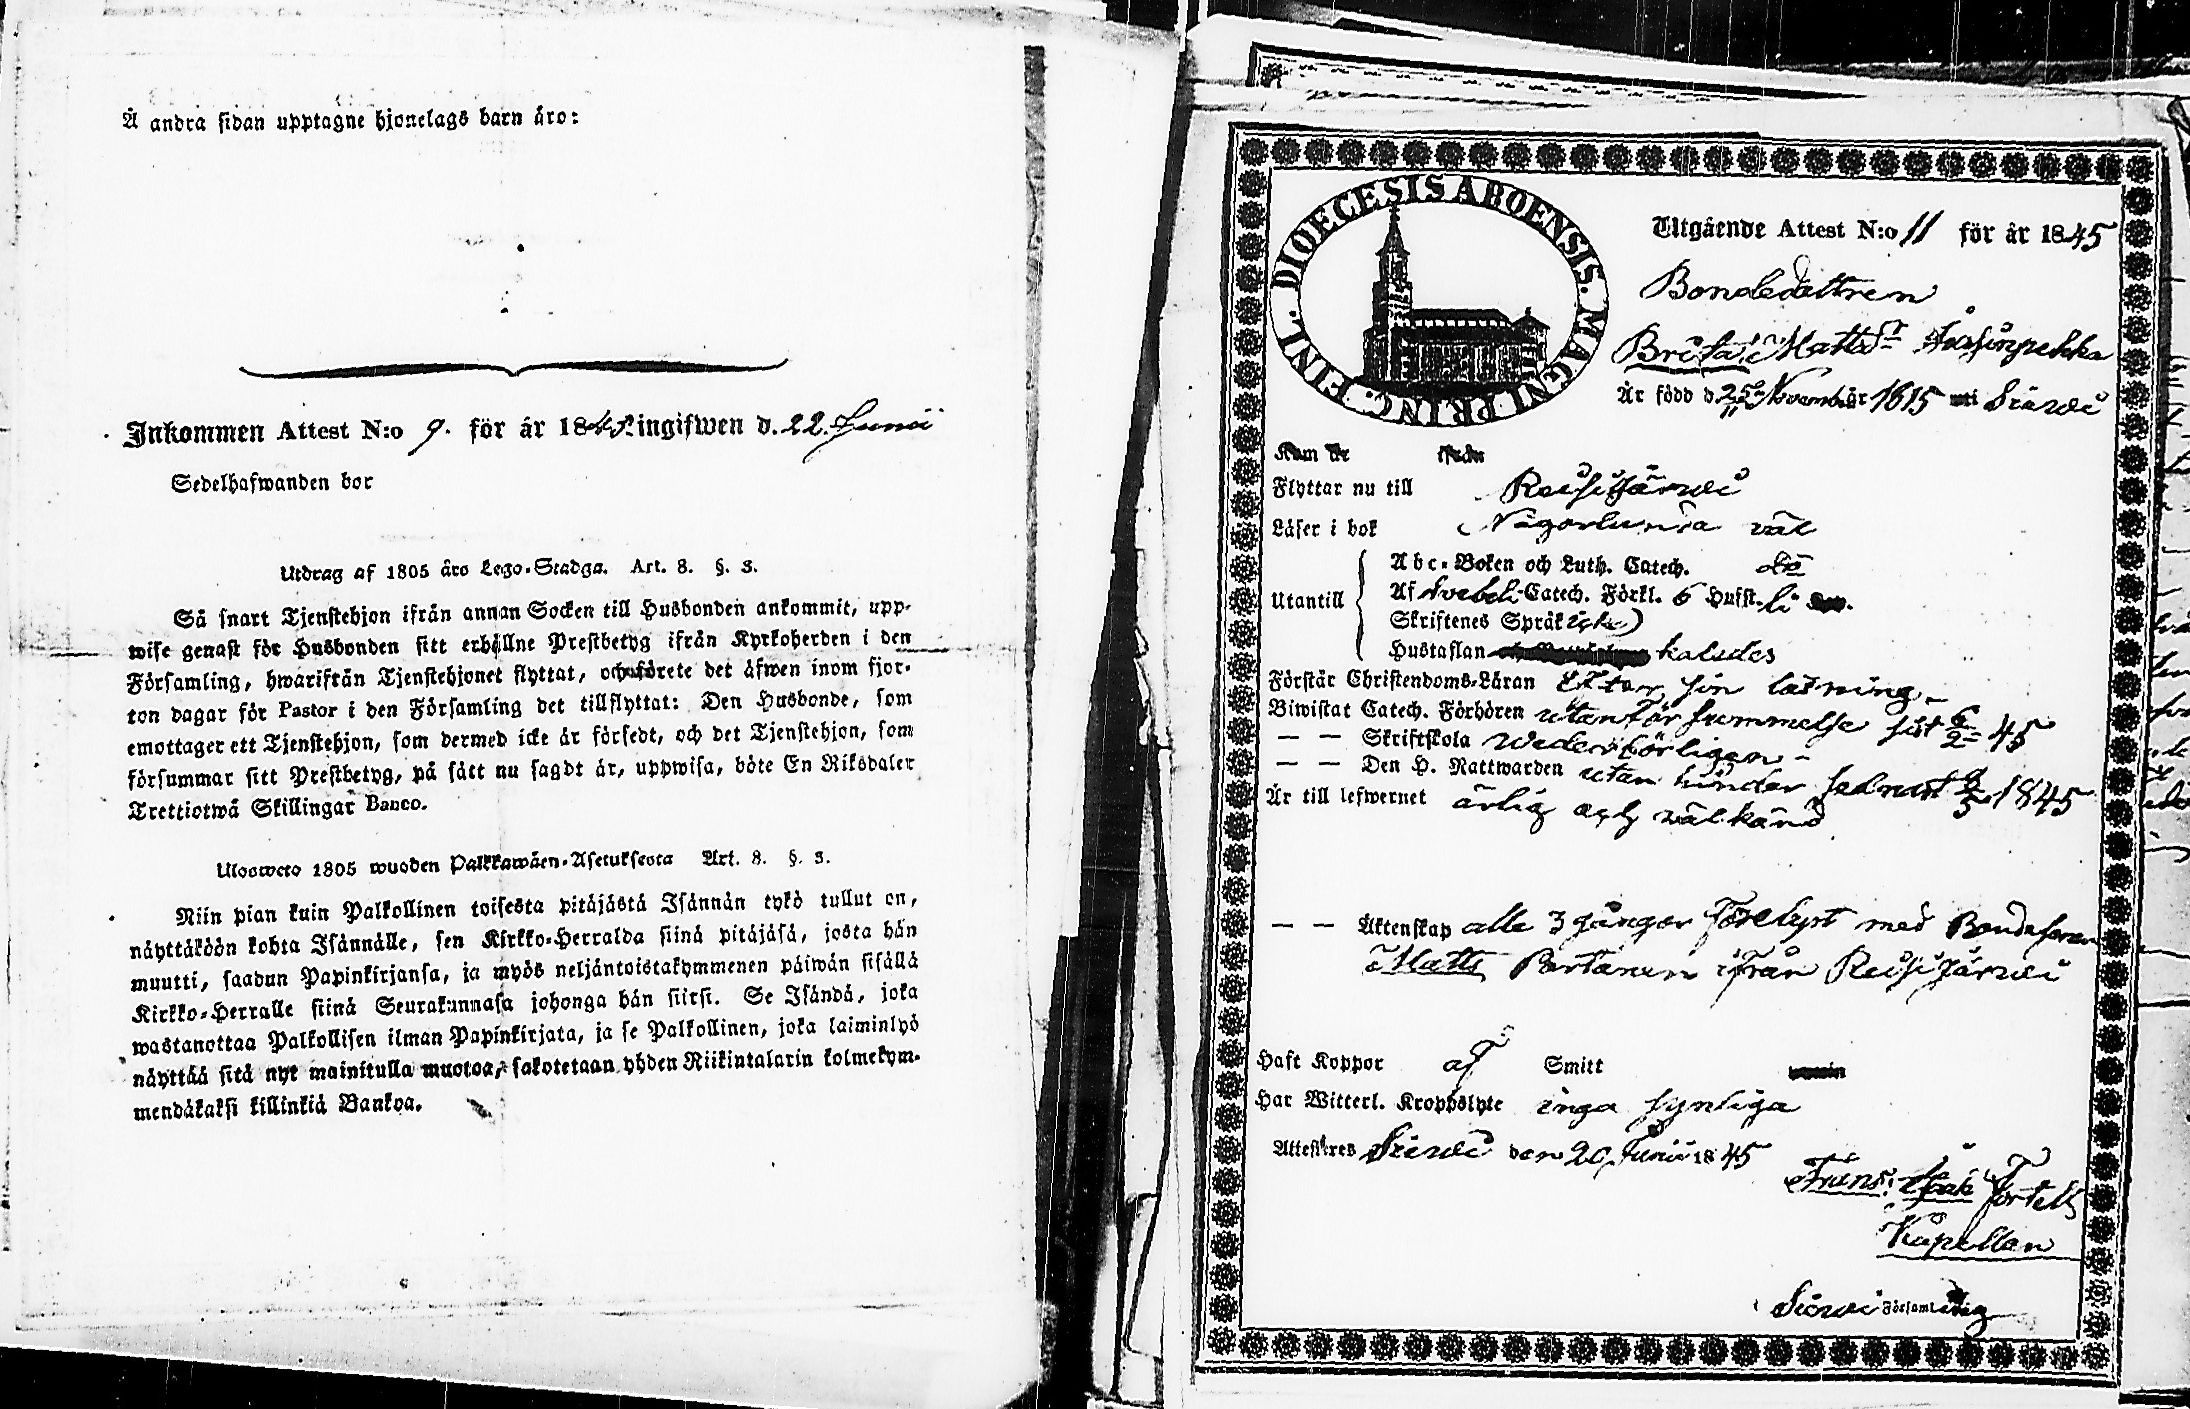 Å andra sidan upptagne hjonelags barn äro:
Inkommen Attest N:o 9. för år 1845 ingifwen d. 22 Junii
Sedelhafwanden bor
Utdrag af 1805 års Lego-Stadga. Art. 8. §. 3.
Så snart Tjenstehjon ifrån annan Socken till Husbonden ankommit, upp-
wise genast för Husbonden sitt erhållne Prestbetyg ifrån Kyrkoherden i den
Församling, hwarifrån Tjenstehjonet flyttat, och förete det äfwen inom fjor-
ton dagar för Pastor i den Församling det tillflyttat: Den Husbonde, som
emottager ett Tjenstehjon, som dermed icke är försedt, och det Tjenstehjon, som
försummar sitt Prestbetyg, på sätt nu sagdt är, uppwisa, böte En Riksdaler
Trettiotwå Skillingar Banco.
Ulosweto 1805 wuoden Palkkawäen-Asetuksesta Art. 8. §. 3.
Niin pian kuin Palkollinen toisesta pitäjästä Isännän tykö tullut on,
näyttäköön kohta Isännälle, sen Kirkko-Herralda siinä pitäjäsä, josta hän
muutti, saadun Papinkirjansa, ja myös neljäntoistakymmenen päiwän sisällä
Kirkko-Herralle siinä Seurakunnasa johonga hän siirsi. Se Isändä, joka
wastanottaa Palkollisen ilman Papinkirjata, ja se Palkollinen, joka laiminlyö
näyttää sitä nyt mainitulla muotoa, sakotetaan yhden Riikintalarin kolmekym-
mendäkaksi killinkiä Bankoa.
DIOECESIS ABOENSIS. MAGNI PRINC. FINL.
Utgående Attest N:o 11 för år 1845
Bondedottren
Brita Matts dr
Är född d 25 Novemb. år 1815 uti Siewi
Kom år ifrån
Flyttar nu till Reisijärwi
Läser i bok Någorlunda väl
Utantill
Abc-Boken och Luth. Catech. do
Af Svebeli Catech. Förkl. 6 Hufst.
Skriftenes Språk icke
Hustaflan kaludes
Förstår Christendoms-Läran Efter sin läsning
Biwistat Catech. Förhören utan försummelse sist 6/2 45
— — Skriftskola wederbörligen
— — Den H. Nattwarden utan hinder sednast 1845
Är till lefwernet ärlig och välkänd
— — Äktenskap alle 3 gånger förelyst med Bondesonen
Matts Partanen ifrån Reisijärwi
Haft Koppor af Smitt
Har Witterl. Kroppslyte inga synliga
Attesteres Siewi den 20 Junii 1845
Frans Isak Fortell
Kapellan
Siewi Församling